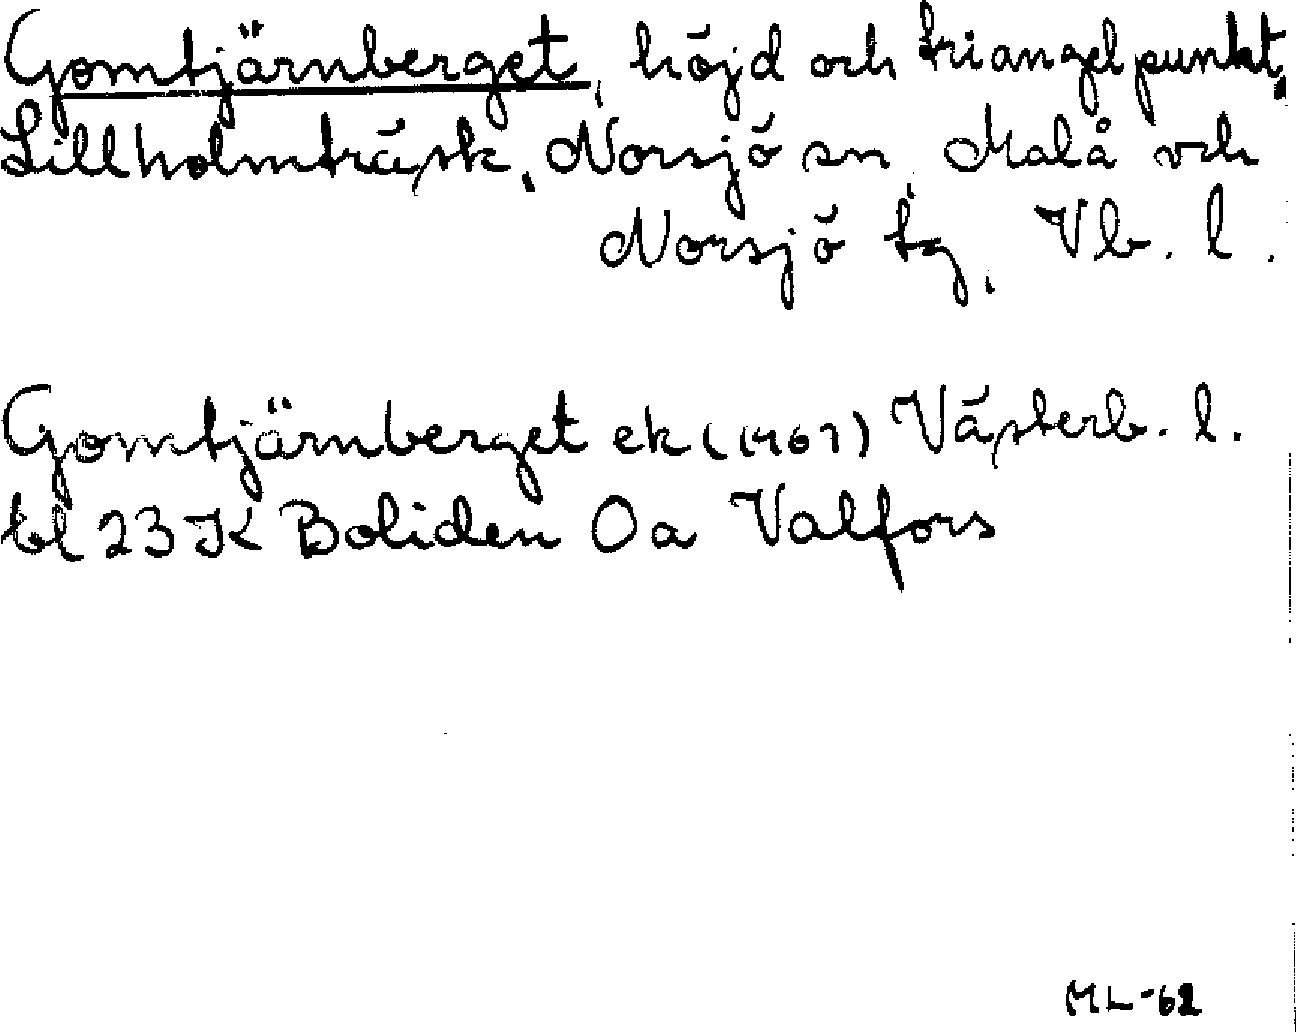 Gomtjärnberget, höjd och triangelpunkt,
Lillholmträsk, Norsjö sn, Malå och
Norsjö tg, Vb. l.
Gomtjärnberget ek (1961) Västerb. l.
bl 23 K Boliden Oa Valfors
ML-62